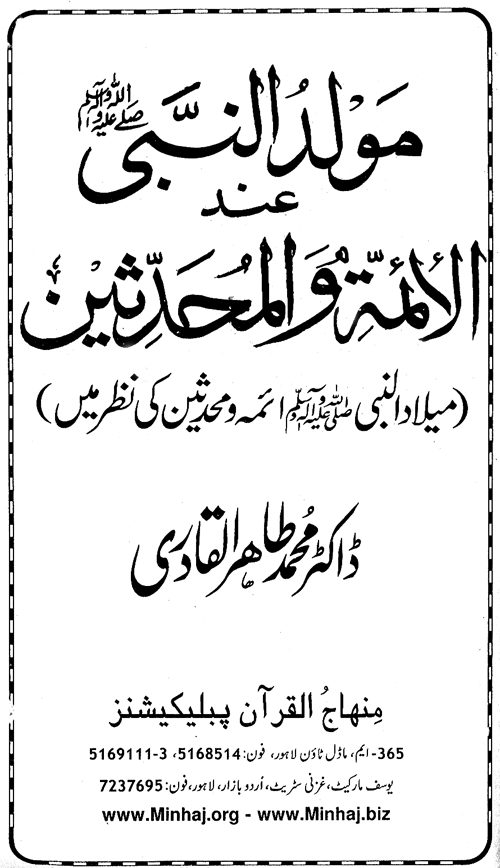 مَوْلِدُ النَّبِيّ ﷺ
عند
الأئمّةِ وَالمُحَدِّثِين
(میلاد النبی ﷺ ائمہ و محدثین کی نظر میں)
ڈاکٹر محمد طاہر القادری
مِنهاجُ القرآن پبلیکیشنز
365- ایم، ماڈل ٹاؤن لاہور، فون: 5168514، 3-5169111
یوسف مارکیٹ، غزنی سٹریٹ، اُردو بازار، لاہور، فون: 7237695
www.Minhaj.org - www.Minhaj.biz